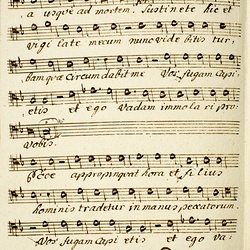 a usque ad mortem. Sustinete hic et
vigilate mecum nunc videbitis tur,
bam quæ circumdabit me Vos fugam Capi,
etis et ego Vadam immolari pro
vobis.
Ecce appropinquat hora et filius
hominis tradetur in manus peccatorum.
Vos fugam Capi etis et ego va,